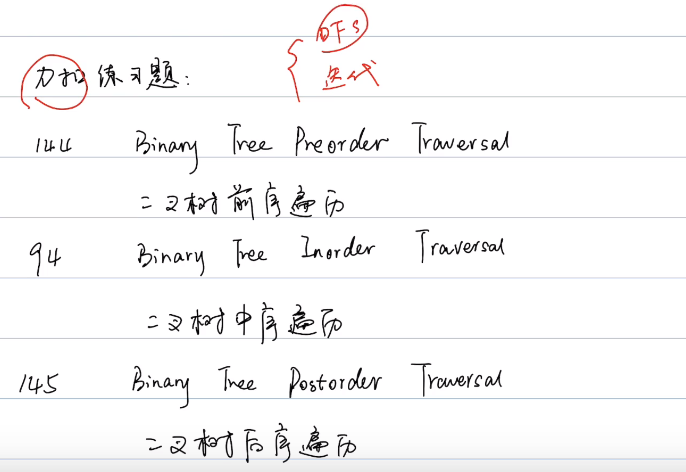 DFS
迭代
力扣 练习题:
144 Binary Tree Preorder Traversal
二叉树前序遍历
94 Binary Tree Inorder Traversal
二叉树中序遍历
145 Binary Tree Postorder Traversal
二叉树后序遍历